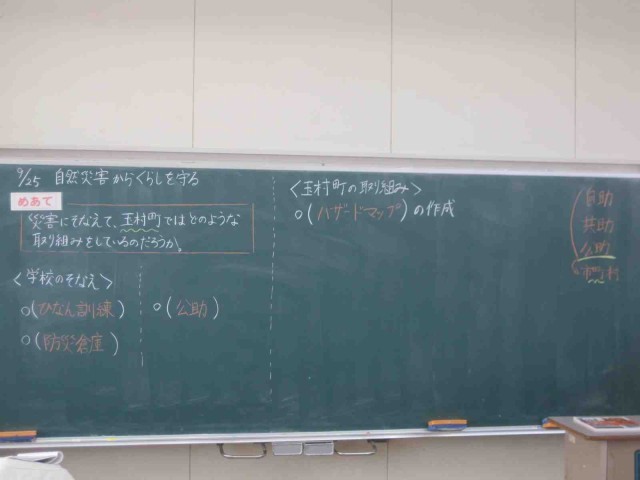 9/25 自然災害からくらしを守る
めあて
災害にそなえて、玉村町ではどのような
取り組みをしているのだろうか。
<学校のそなえ>
○(ひなん訓練)
○(防災倉庫)
○(公助)
<玉村町の取り組み>
○(ハザードマップ)の作成
自助
共助
公助